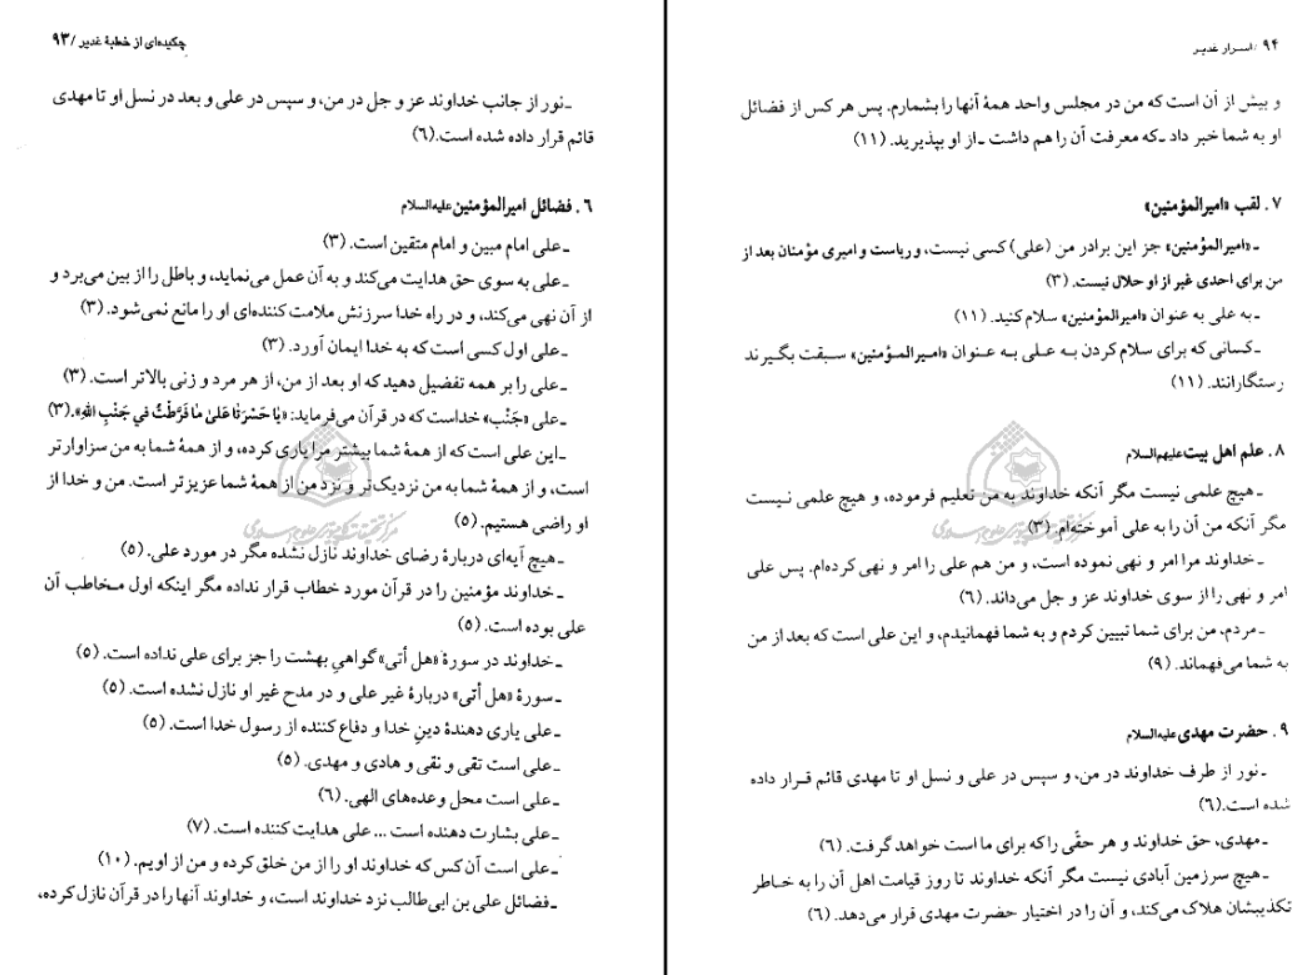 چکیده‌ای از خطبهٔ غدیر /۹۳
ـ نور از جانب خداوند عز و جل در من، و سپس در علی و بعد در نسل او تا مهدی
قائم قرار داده شده است.(۶)
۶. فضائل امیرالمؤمنین علیه‌السلام
ـ علی امام مبین و امام متقین است. (۳)
ـ علی به سوی حق هدایت می‌کند و به آن عمل می‌نماید، و باطل را از بین می‌برد و
از آن نهی می‌کند، و در راه خدا سرزنش ملامت کننده‌ای او را مانع نمی‌شود. (۳)
ـ علی اول کسی است که به خدا ایمان آورد. (۳)
ـ علی را بر همه تفضیل دهید که او بعد از من، از هر مرد و زنی بالاتر است. (۳)
ـ علی «جَنْب» خداست که در قرآن می‌فرماید: «یٰا حَسْرَتٰا عَلیٰ مٰا فَرَّطْتُ في جَنْبِ اللهِ».(۳)
ـ این علی است که از همهٔ شما بیشتر مرا یاری کرده، و از همهٔ شما به من سزاوارتر
است، و از همهٔ شما به من نزدیک‌تر و نزد من از همهٔ شما عزیزتر است. من و خدا از
او راضی هستیم. (۵)
ـ هیچ آیه‌ای دربارهٔ رضای خداوند نازل نشده مگر در مورد علی. (۵)
ـ خداوند مؤمنین را در قرآن مورد خطاب قرار نداده مگر اینکه اول مخاطب آن
علی بوده است. (۵)
ـ خداوند در سورهٔ «هل أتی» گواهیِ بهشت را جز برای علی نداده است. (۵)
ـ سورهٔ «هل أتی» دربارهٔ غیر علی و در مدح غیر او نازل نشده است. (۵)
ـ علی یاری دهندهٔ دینِ خدا و دفاع کننده از رسول خدا است. (۵)
ـ علی است تقی و نقی و هادی و مهدی. (۵)
ـ علی است محل وعده‌های الهی. (۶)
ـ علی بشارت دهنده است ... علی هدایت کننده است. (۷)
ـ علی است آن کس که خداوند او را از من خلق کرده و من از اویم. (۱۰)
ـ فضائل علی بن ابی‌طالب نزد خداوند است، و خداوند آنها را در قرآن نازل کرده،
۹۴ / اسرار غدیر
و بیش از آن است که من در مجلس واحد همهٔ آنها را بشمارم. پس هر کس از فضائل
او به شما خبر داد ـ که معرفت آن را هم داشت ـ از او بپذیرید. (۱۱)
۷. لقب «امیرالمؤمنین»
ـ «امیرالمؤمنین» جز این برادر من (علی) کسی نیست، و ریاست و امیری مؤمنان بعد از
من برای احدی غیر از او حلال نیست. (۳)
ـ به علی به عنوان «امیرالمؤمنین» سلام کنید. (۱۱)
ـ کسانی که برای سلام کردن به علی به عنوان «امیرالمؤمنین» سبقت بگیرند
رستگارانند. (۱۱)
۸. علم اهل بیت علیهم‌السلام
ـ هیچ علمی نیست مگر آنکه خداوند به من تعلیم فرموده، و هیچ علمی نیست
مگر آنکه من آن را به علی آموخته‌ام. (۳)
ـ خداوند مرا امر و نهی نموده است، و من هم علی را امر و نهی کرده‌ام. پس علی
امر و نهی را از سوی خداوند عز و جل می‌داند. (۶)
ـ مردم، من برای شما تبیین کردم و به شما فهمانیدم، و این علی است که بعد از من
به شما می‌فهماند. (۹)
۹. حضرت مهدی علیه‌السلام
ـ نور از طرف خداوند در من، و سپس در علی و نسل او تا مهدی قائم قرار داده
شده است.(۶)
ـ مهدی، حق خداوند و هر حقّی را که برای ما است خواهد گرفت. (۶)
ـ هیچ سرزمین آبادی نیست مگر آنکه خداوند تا روز قیامت اهل آن را به خاطر
تکذیبشان هلاک می‌کند، و آن را در اختیار حضرت مهدی قرار می‌دهد. (۶)